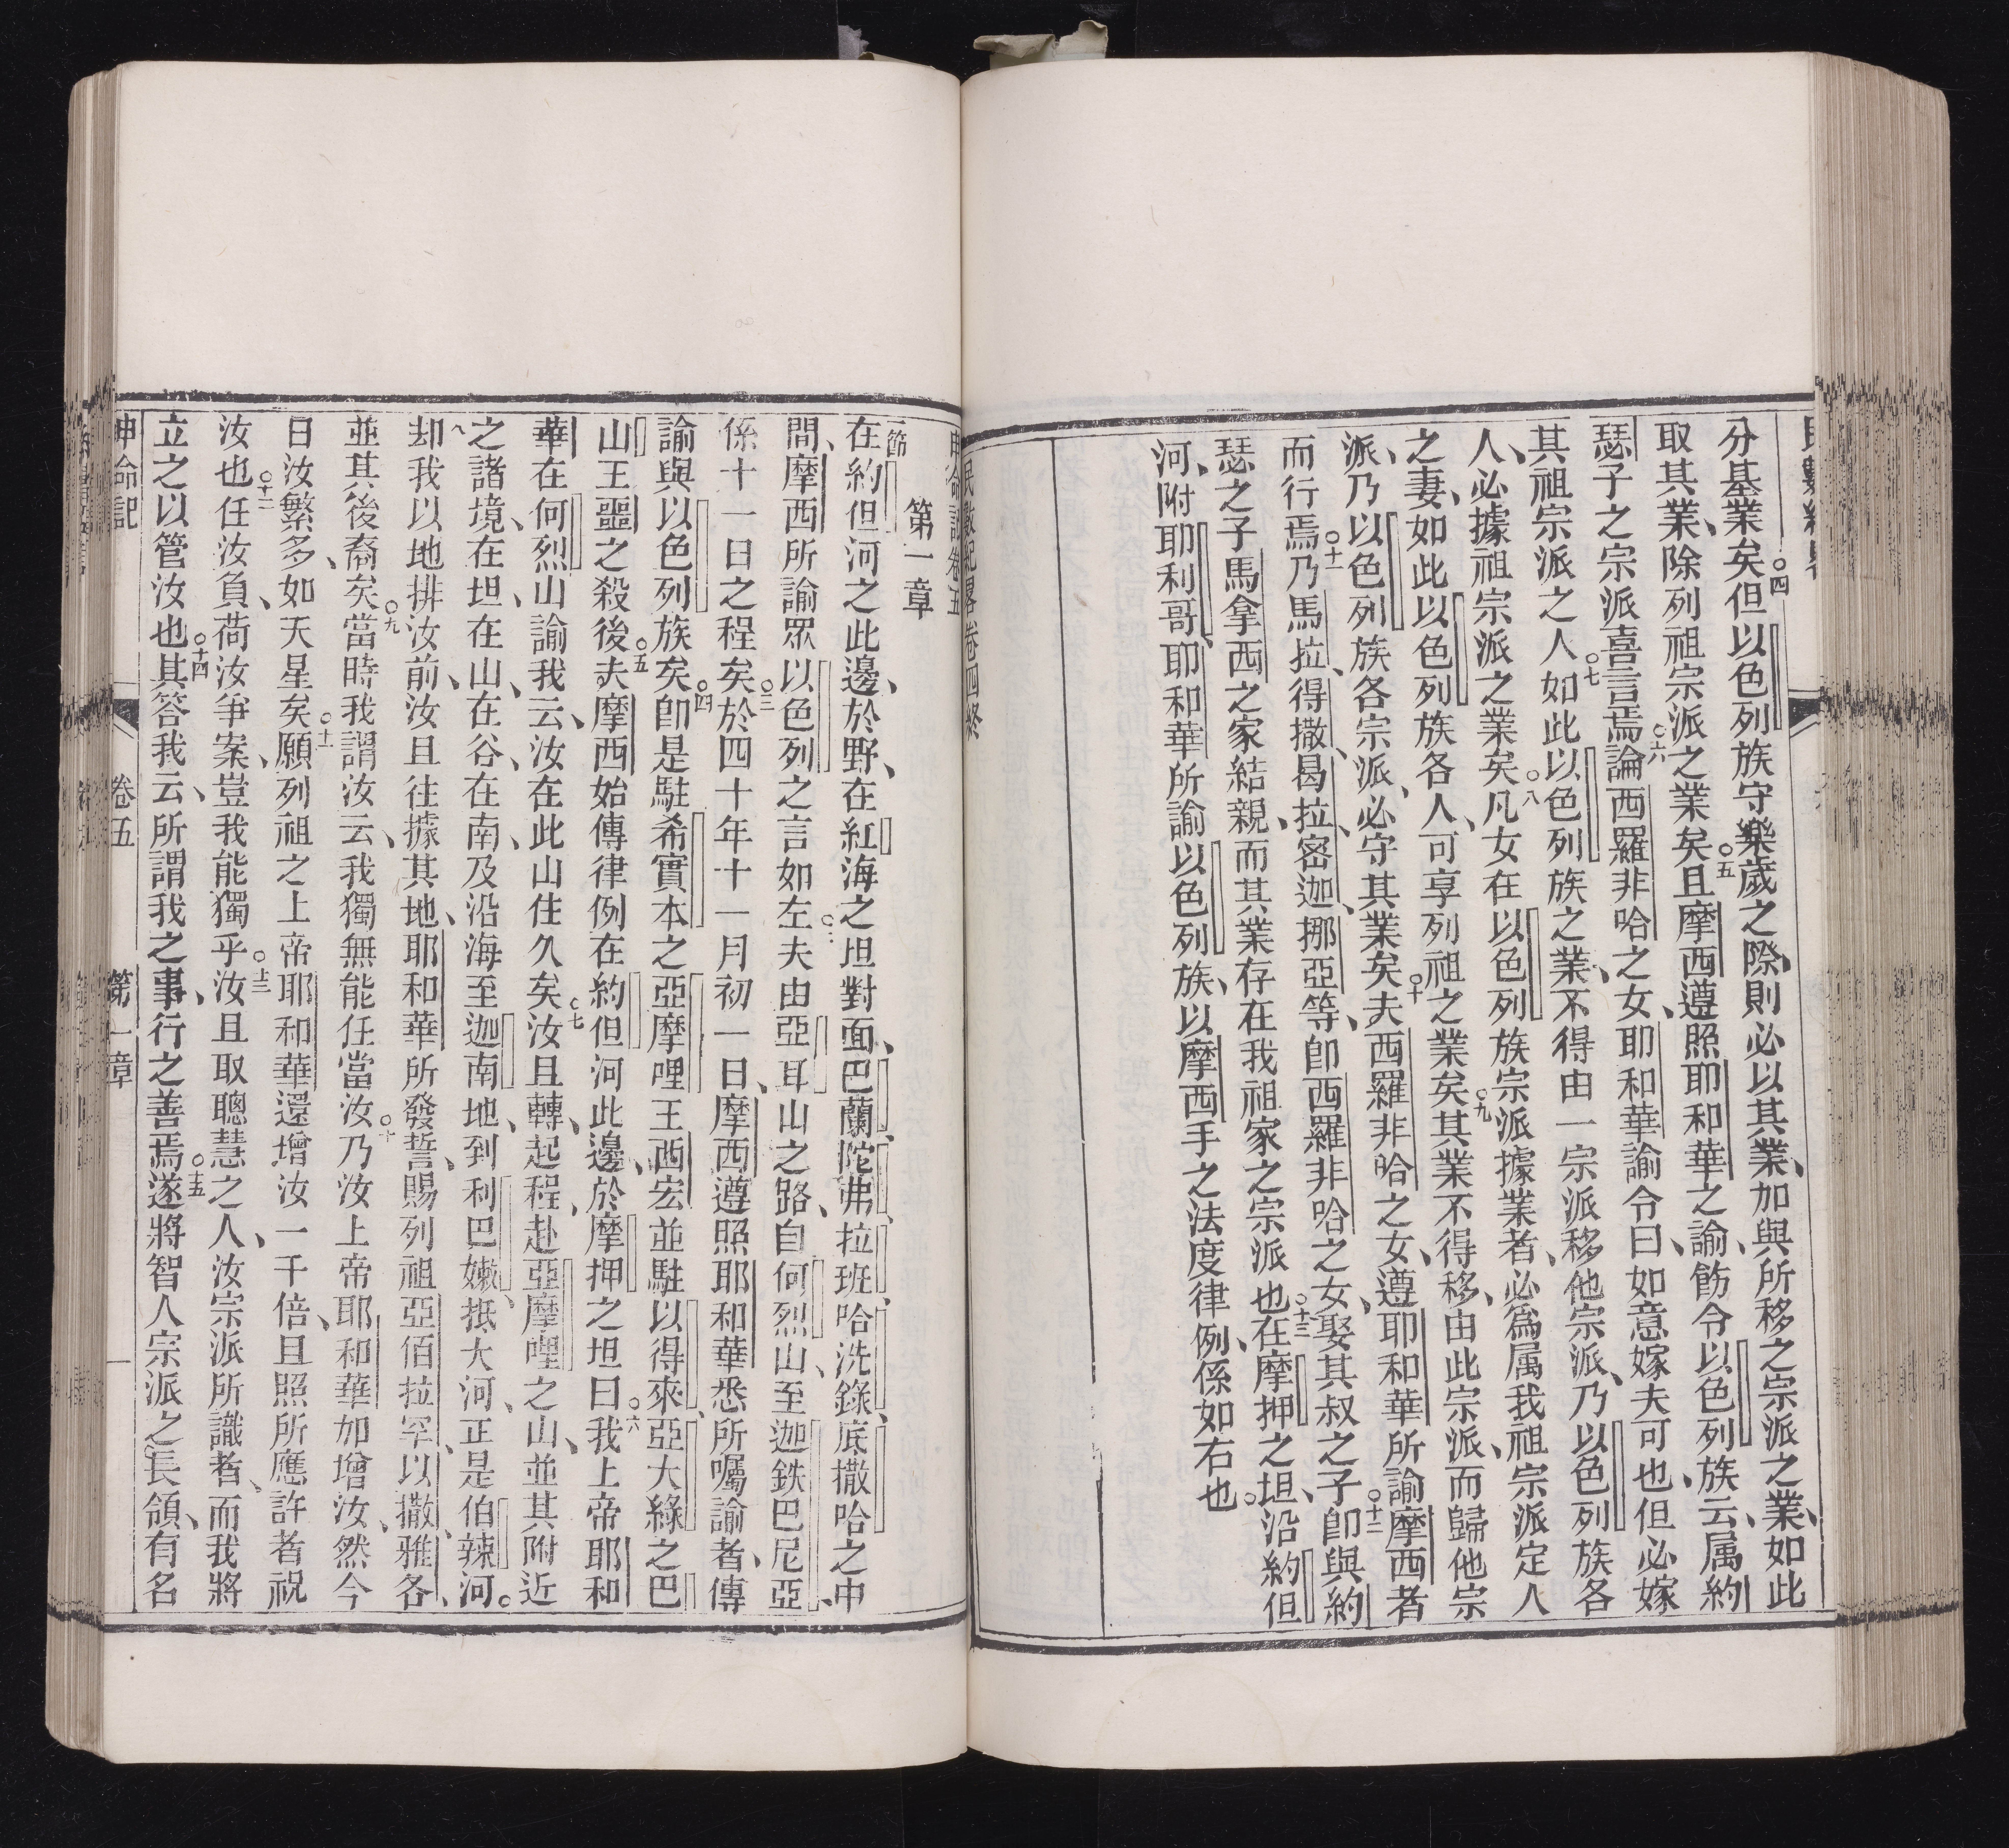 分基業矣但以色列族守樂歲之際、則必以其業、加與所移之宗派之業、如此
取其業、除列祖宗派之業矣○五且摩西遵照耶和華之諭、飭令以色列族云、属約
瑟子之宗派喜言焉○六論西羅非哈之女、耶和華諭令曰、如意嫁夫可也、但必嫁
其祖宗派之人○七如此以色列族之業、不得由一宗派移他宗派、乃以色列族各
人、必據祖宗派之業矣○八凡女在以色列族宗派據業者、必爲属我祖宗派定人
之妻、如此以色列族各人、可享列祖之業矣○九其業不得移、由此宗派、而歸他宗
派、乃以色列族各宗派、必守其業矣○十夫西羅非哈之女、遵耶和華所諭摩西者
而行焉○十一乃馬拉、得撒、曷拉、密迦、挪亞等、卽西羅非哈之女、娶其叔之子○十二卽與約
瑟之子馬拿西之家結親、而其業存在我祖家之宗派也○十三在摩押之坦、沿約但
河、附耶利哥、耶和華所諭以色列族、以摩西手之法度律例、係如右也。
民數紀畧卷四終
申命記卷五
第一章
一節在約但河之此邊、於野、在紅海之坦對面、巴蘭、陀弗、拉班、哈洗錄、底撒哈之中
間、摩西所諭眾以色列之言如左○二夫由亞耳山之路、自何烈山、至迦鉄巴尼亞、
係十一日之程矣○三於四十年十一月初一日、摩西遵照耶和華悉所囑諭者、傳
諭與以色列族矣○四卽是駐希實本之亞摩哩王西宏並駐以得來、亞大綠之巴
山王噩之殺後○五夫摩西始傳律例在約但河此邊、於摩押之坦曰○六我上帝耶和
華在何烈山諭我云、汝在此山住久矣○七汝且轉、起程、赴亞摩哩之山、並其附近
之諸境、在坦、在山、在谷、在南、及沿海至迦南地、到利巴嫩、抵大河、正是伯辣河。
八却我以地排汝前、汝且往據其地、耶和華所發誓、賜列祖亞佰拉罕、以撒、雅各、
並其後裔矣○九當時我謂汝云、我獨無能任當汝○十乃汝上帝耶和華加增汝、然今
日汝繁多、如天星矣○十一願列祖之上帝耶和華還增汝一千倍、且照所應許者祝
汝也○十二任汝負、荷汝爭案、豈我能獨乎○十三汝且取聰慧之人、汝宗派所識者、而我將
立之以管汝也○十四其答我云、所謂我之事、行之善焉○十五遂將智人宗派之長領、有名
申命記 卷五 第一章 一